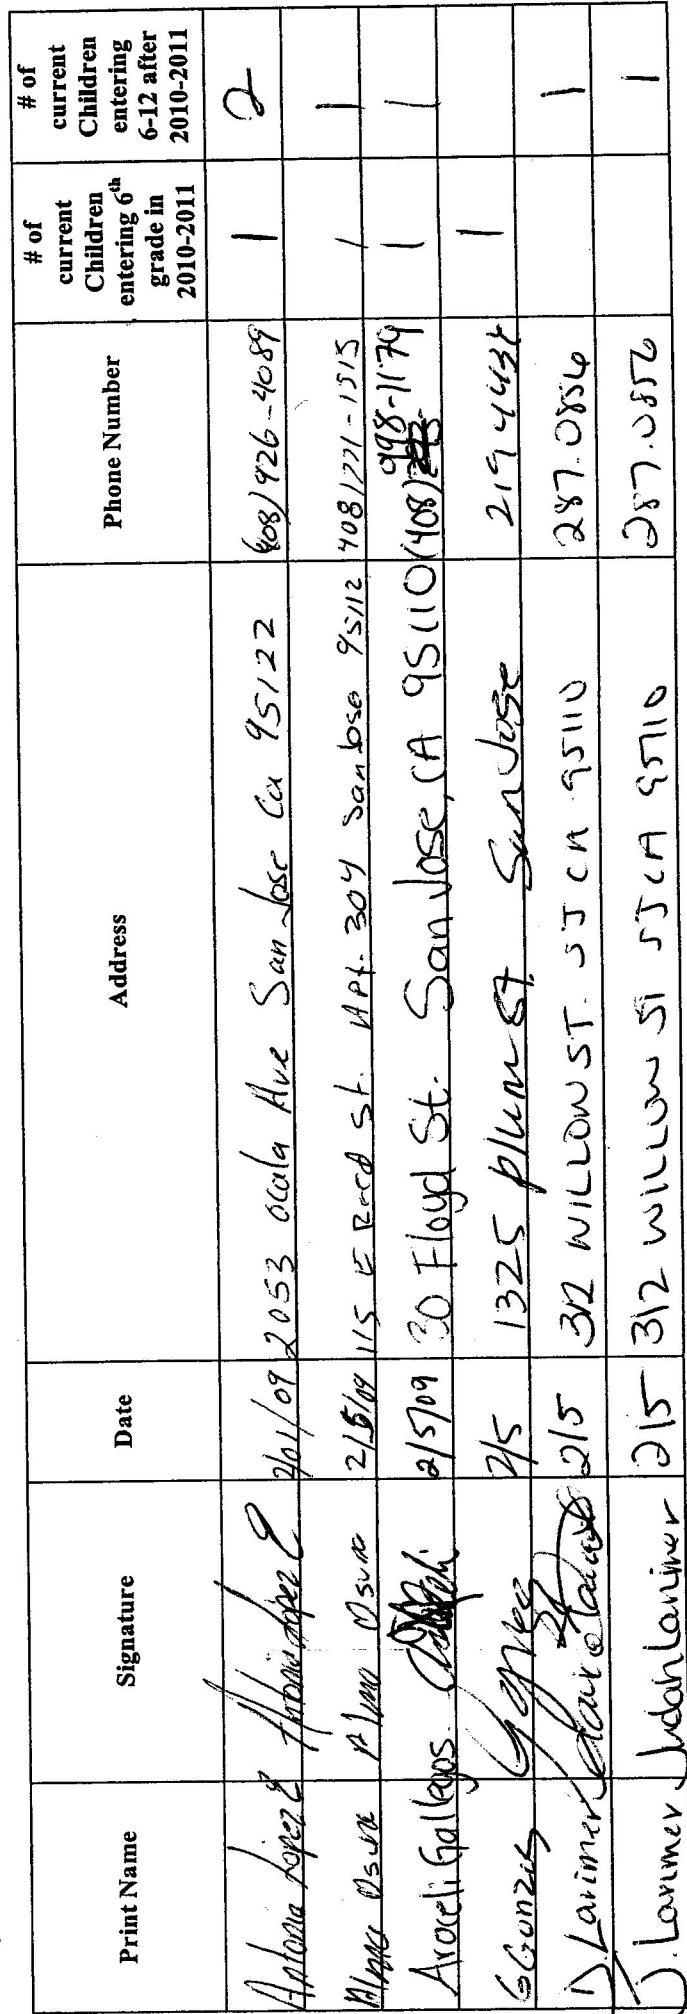 Print Name Signature Date Address Phone Number # of current Children entering 6th grade in 2010-2011 # of current Children entering 6-12 after 2010-2011
Antonia Lopez E Antonia Lopez E 2/01/09 2053 Ocala Ave San Jose Ca 95122 (408) 926-4089 1 2
Alma Osuna Alma Osuna 2/5/09 115 E Reed St. Apt. 304 San Jose 95112 408) 221-1515 1 1
Araceli Gallegos 2/5/09 30 Floyd St. San Jose, CA 95110 (408) 998-1179 1 1
G Gonzis 2/5 1325 Plum St. San Jose 219 443 1
D. Larimer 2/5 312 WILLOW ST. SJ CA 95110 287-0856 1
J. Larimer Judah Larimer 2/5 312 WILLOW ST SJ CA 95110 287-0856 1